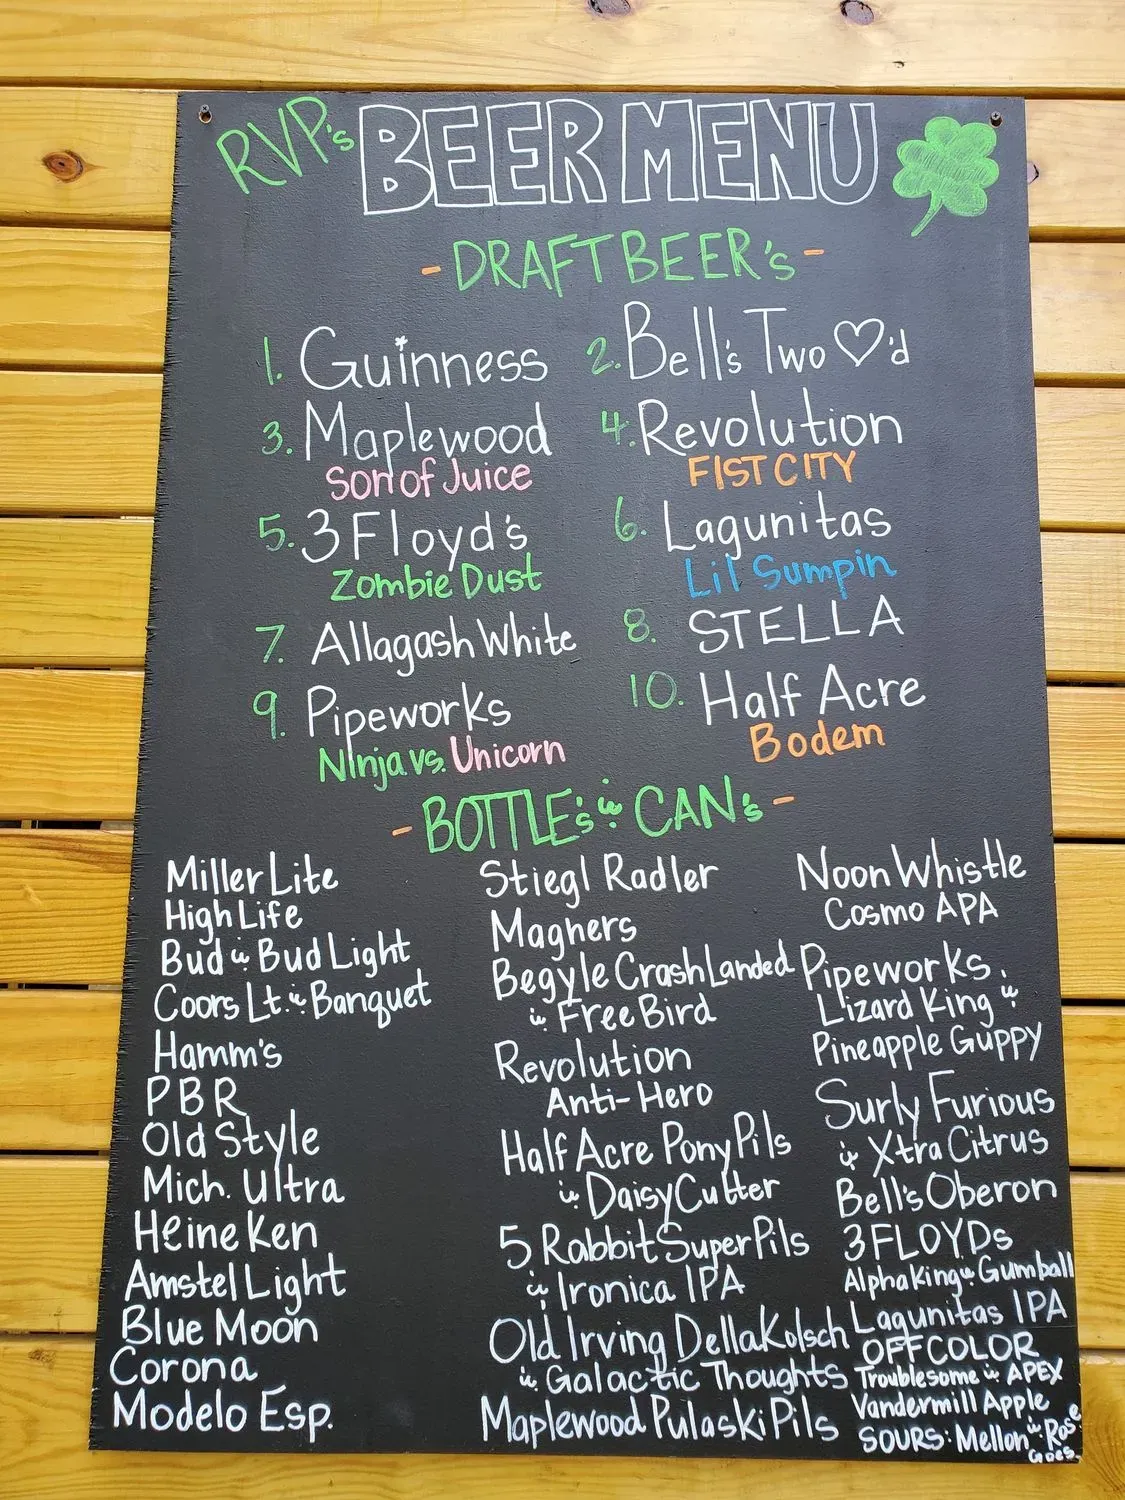 RVP's BEER MENU
- DRAFT BEER's -
1. Guinness
2. Bell's Two ♡'d
3. Maplewood
Son of Juice
4. Revolution
FIST CITY
5. 3 Floyd's
Zombie Dust
6. Lagunitas
Lil Sumpin
7. Allagash White
8. STELLA
9. Pipeworks
Ninja vs. Unicorn
10. Half Acre
Bodem
- BOTTLE's & CAN's -
Miller Lite
High Life
Bud & Bud Light
Coors Lt. & Banquet
Hamm's
PBR
Old Style
Mich. Ultra
Heineken
Amstel Light
Blue Moon
Corona
Modelo Esp.
Stiegl Radler
Magners
Begyle Crash Landed
& Free Bird
Revolution
Anti-Hero
Half Acre Pony Pils
& Daisy Cutter
5 Rabbit Super Pils
& Ironica IPA
Old Irving Della Kolsch
& Galactic Thoughts
Maplewood Pulaski Pils
Noon Whistle
Cosmo APA
Pipeworks.
Lizard King &
Pineapple Guppy
Surly Furious
& Xtra Citrus
Bell's Oberon
3 FLOYDs
Alpha King & Gumball
Lagunitas IPA
OFF COLOR
Troublesome & APEX
Vandermill Apple
SOURS: Mellon & Rose
Goes